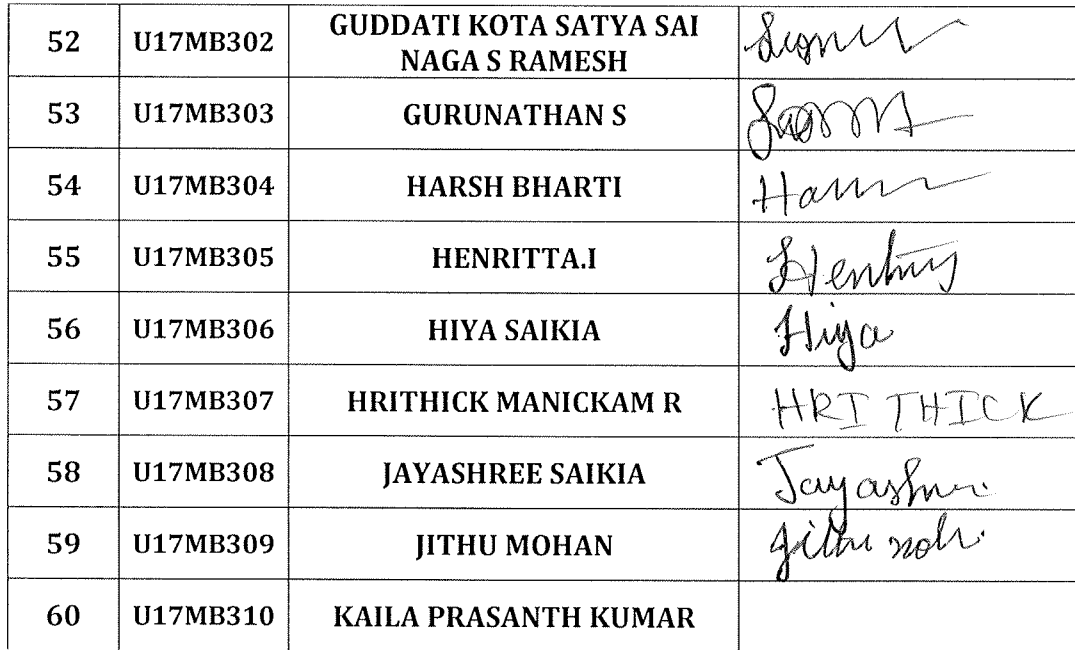 52 U17MB302 GUDDATI KOTA SATYA SAI
NAGA S RAMESH
53 U17MB303 GURUNATHAN S
54 U17MB304 HARSH BHARTI
55 U17MB305 HENRITTA.I
56 U17MB306 HIYA SAIKIA Hiya
57 U17MB307 HRITHICK MANICKAM R HRITHICK
58 U17MB308 JAYASHREE SAIKIA
59 U17MB309 JITHU MOHAN
60 U17MB310 KAILA PRASANTH KUMAR